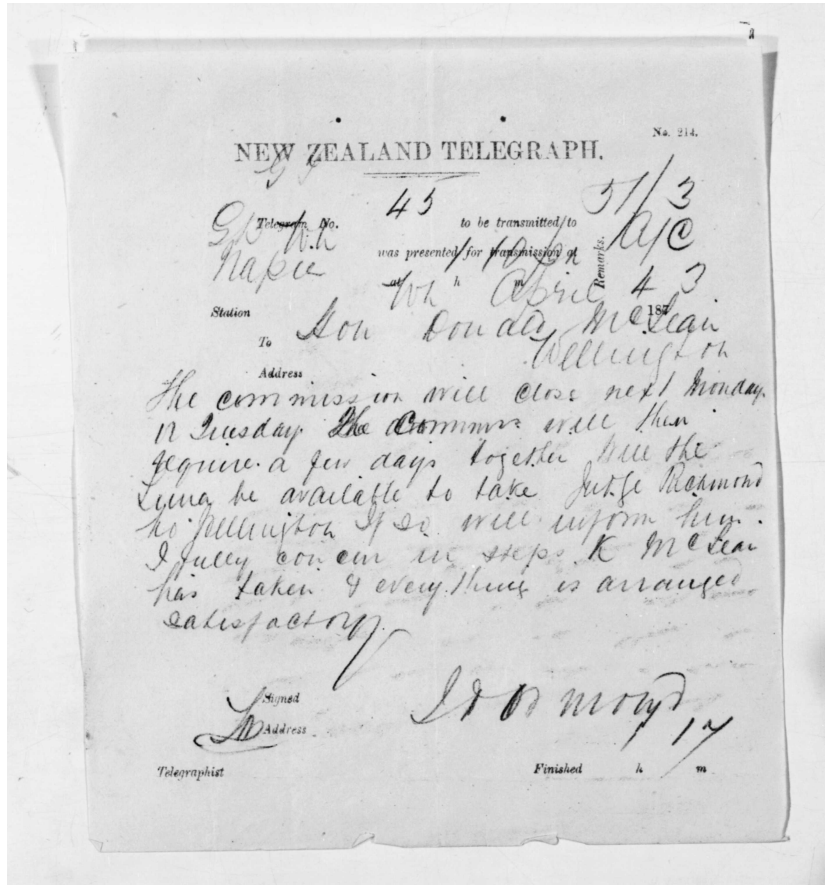 No. 214.
NEW ZEALAND TELEGRAPH.
Telegram No. 45 to be transmitted to 51/3
Napier was presented for transmission at Remarks.
at Wn h m April 4 3
Station 187
To Hon Donald McLean
Wellington
Address
The commission will close next Monday.
or Tuesday The Commrs will then
require a few days together Will the
Luna be available to take Judge Richmond
to Wellington If so will inform him.
I fully concur in steps K McLean
has taken & everything is arranged
satisfactory
Signed J D Ormond
Address
17
Telegraphist Finished h m.